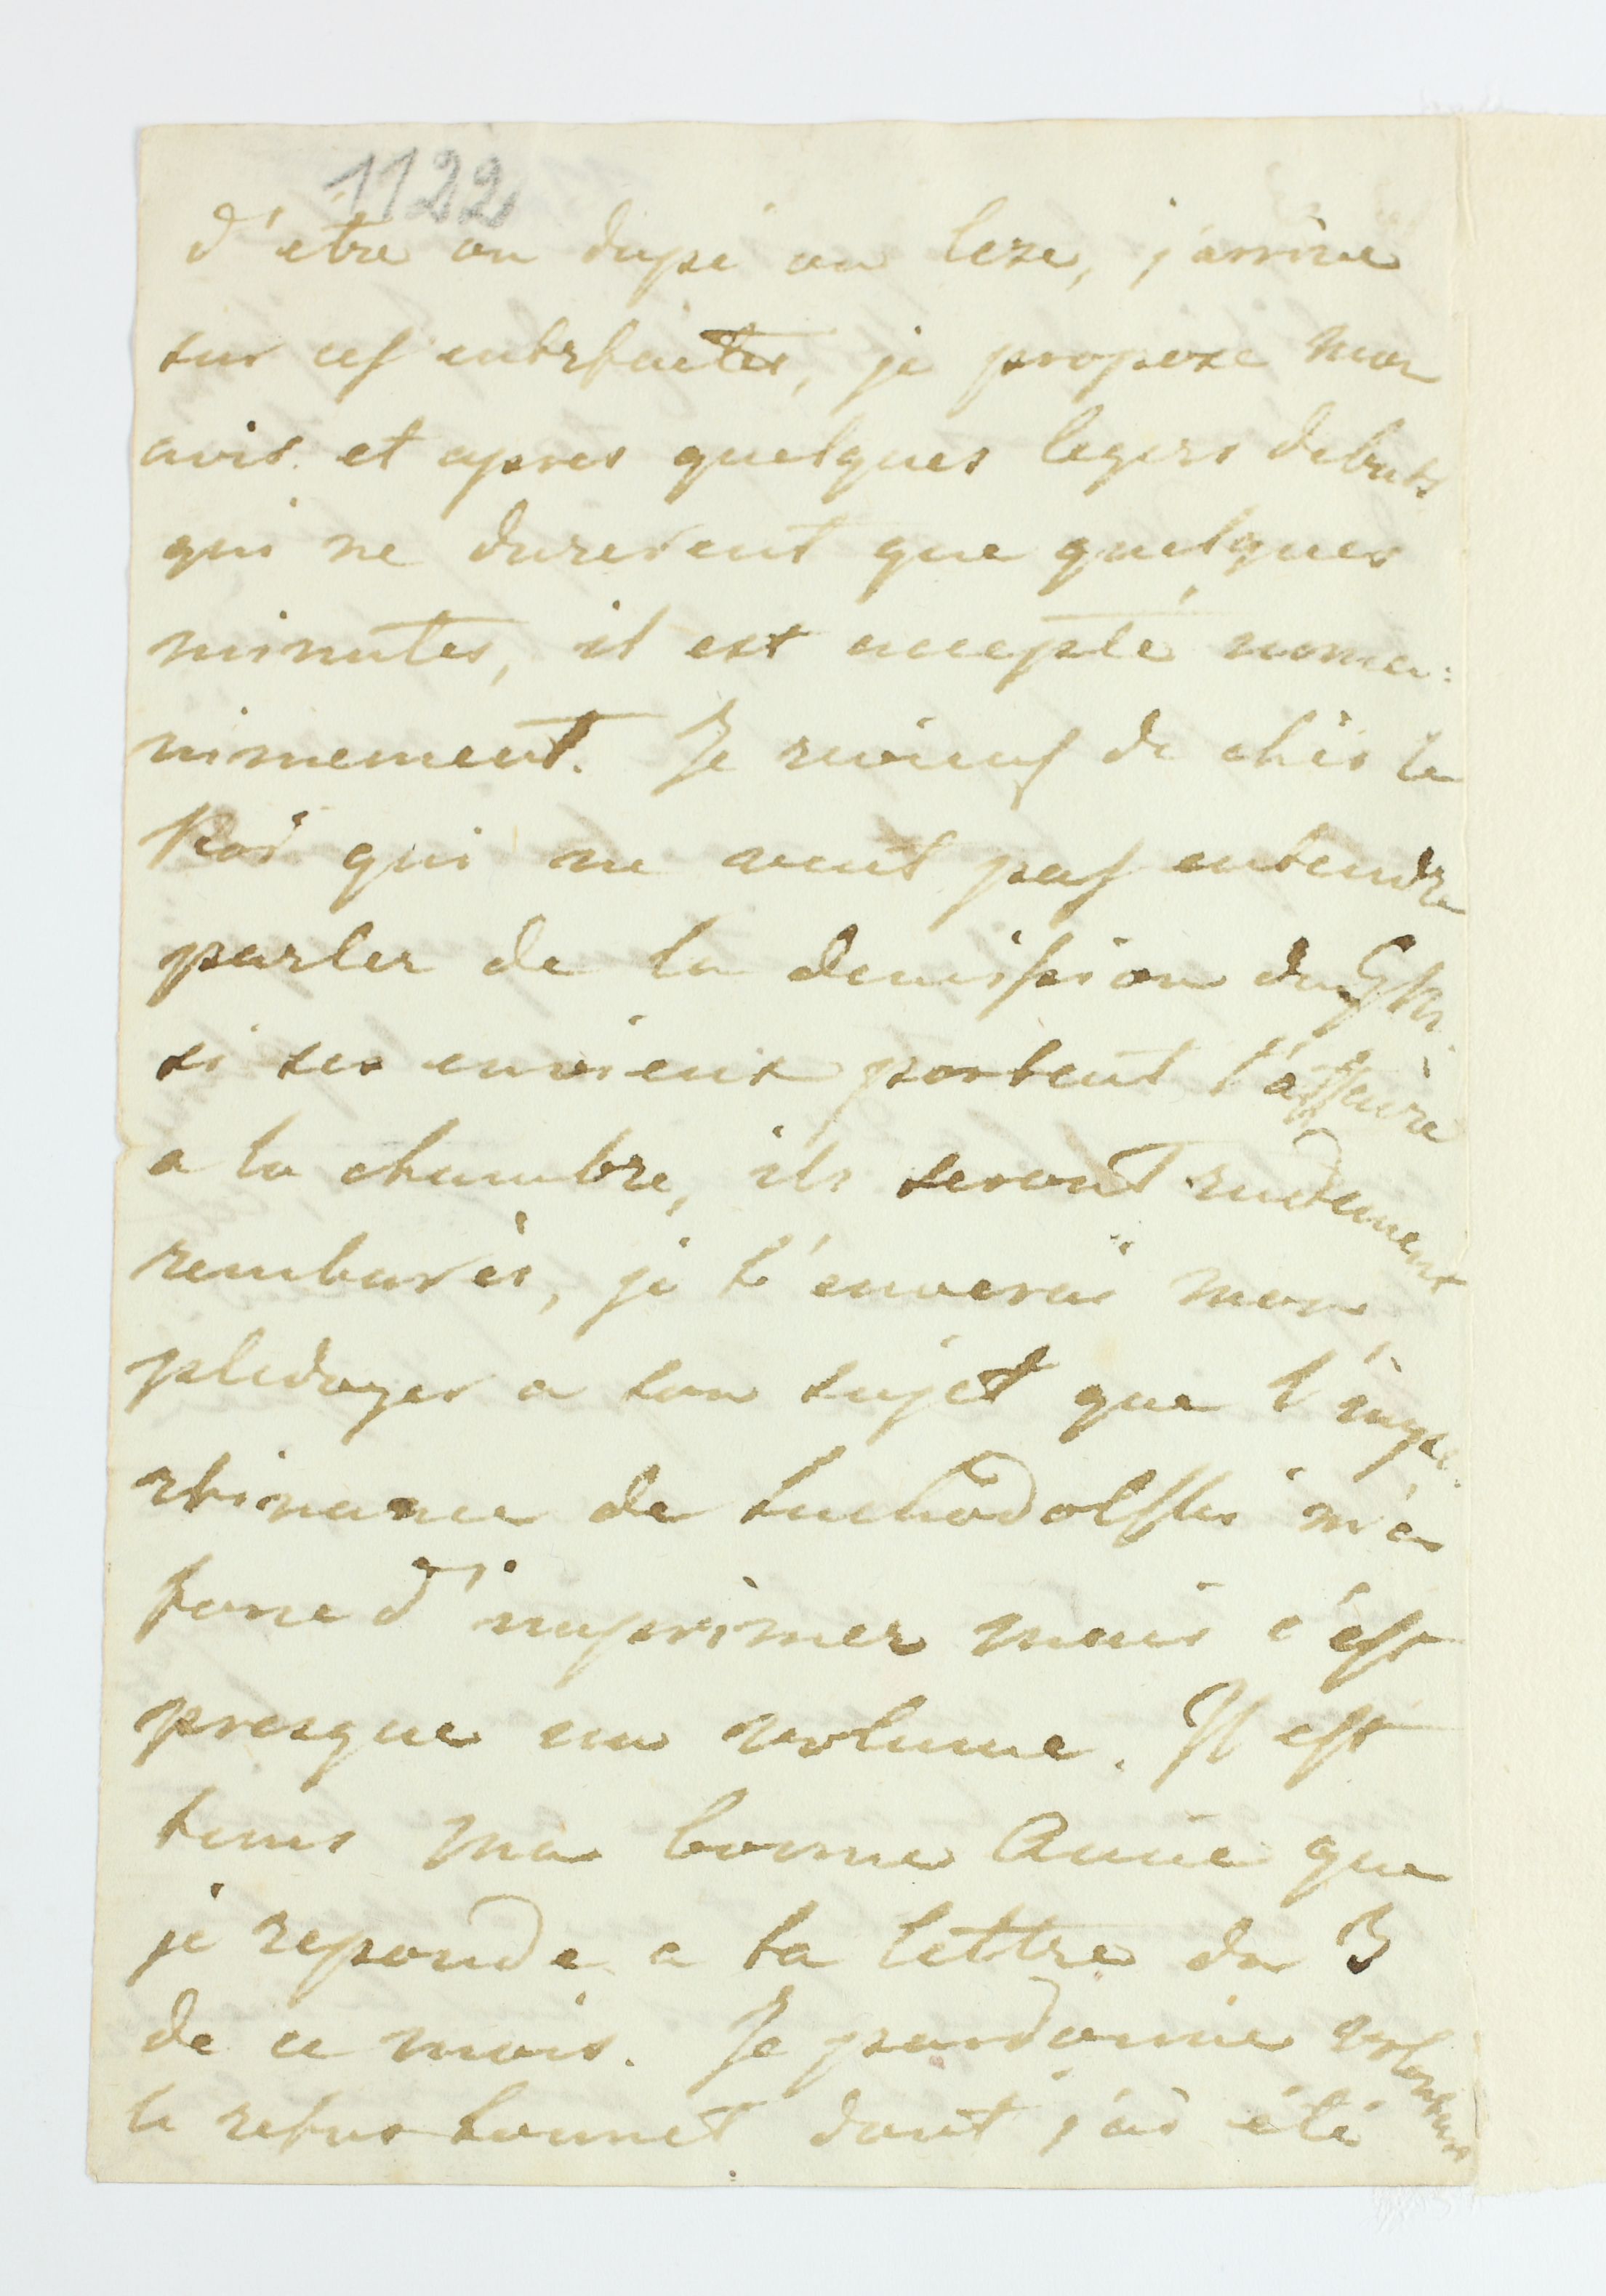 1122
d'être ou dupé ou leze, j'arrive
sur ces entrfaites, je propose mon
avis. et apres quelques legers debats
qui ne durerent que quelques
minutes, il est accepté unna:
nimement. Je reviens de chés le
Roi qui ne veut pas entendre
parler de la demission du
si ses envieux portent l'affaire
a la chambre, ils seront rudement
rembarés, je t'enverai mon
pledoyer a son sujet que l'impe:
rtinance de Suchodolski m'a
forcé d'imprimer mais c'est
presque un volume. Il est
tems ma bonne Anié que
je reponde a ta lettre du 3
de ce mois. Je pardonne volontiers
le refus sonnet dont j'ai été